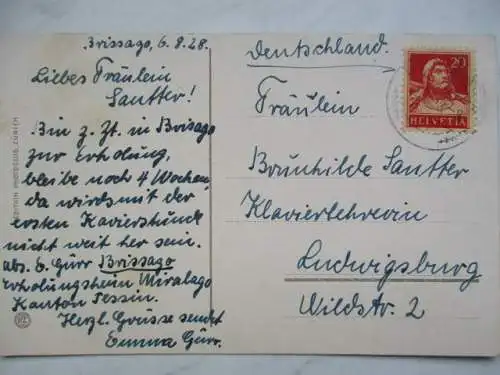 Brissago, 6.8.28.
Liebes Fräulein
Sautter!
Bin z. Zt. in Brisago
zur Erholung,
bleibe noch 4 Wochen,
da wirds mit der
ersten Klavierstunde
nicht weit her sein.
abs. E. Gürr Brissago
Erholungsheim Miralago
Kanton Tessin.
Herzl. Grüsse sendet
Emma Gürr.
Deutschland.
Fräulein
Brunhilde Sautter
Klavierlehrerin
Ludwigsburg
Wildstr. 2
20
HELVETIA
EDITION PHOTOGLOB, ZÜRICH